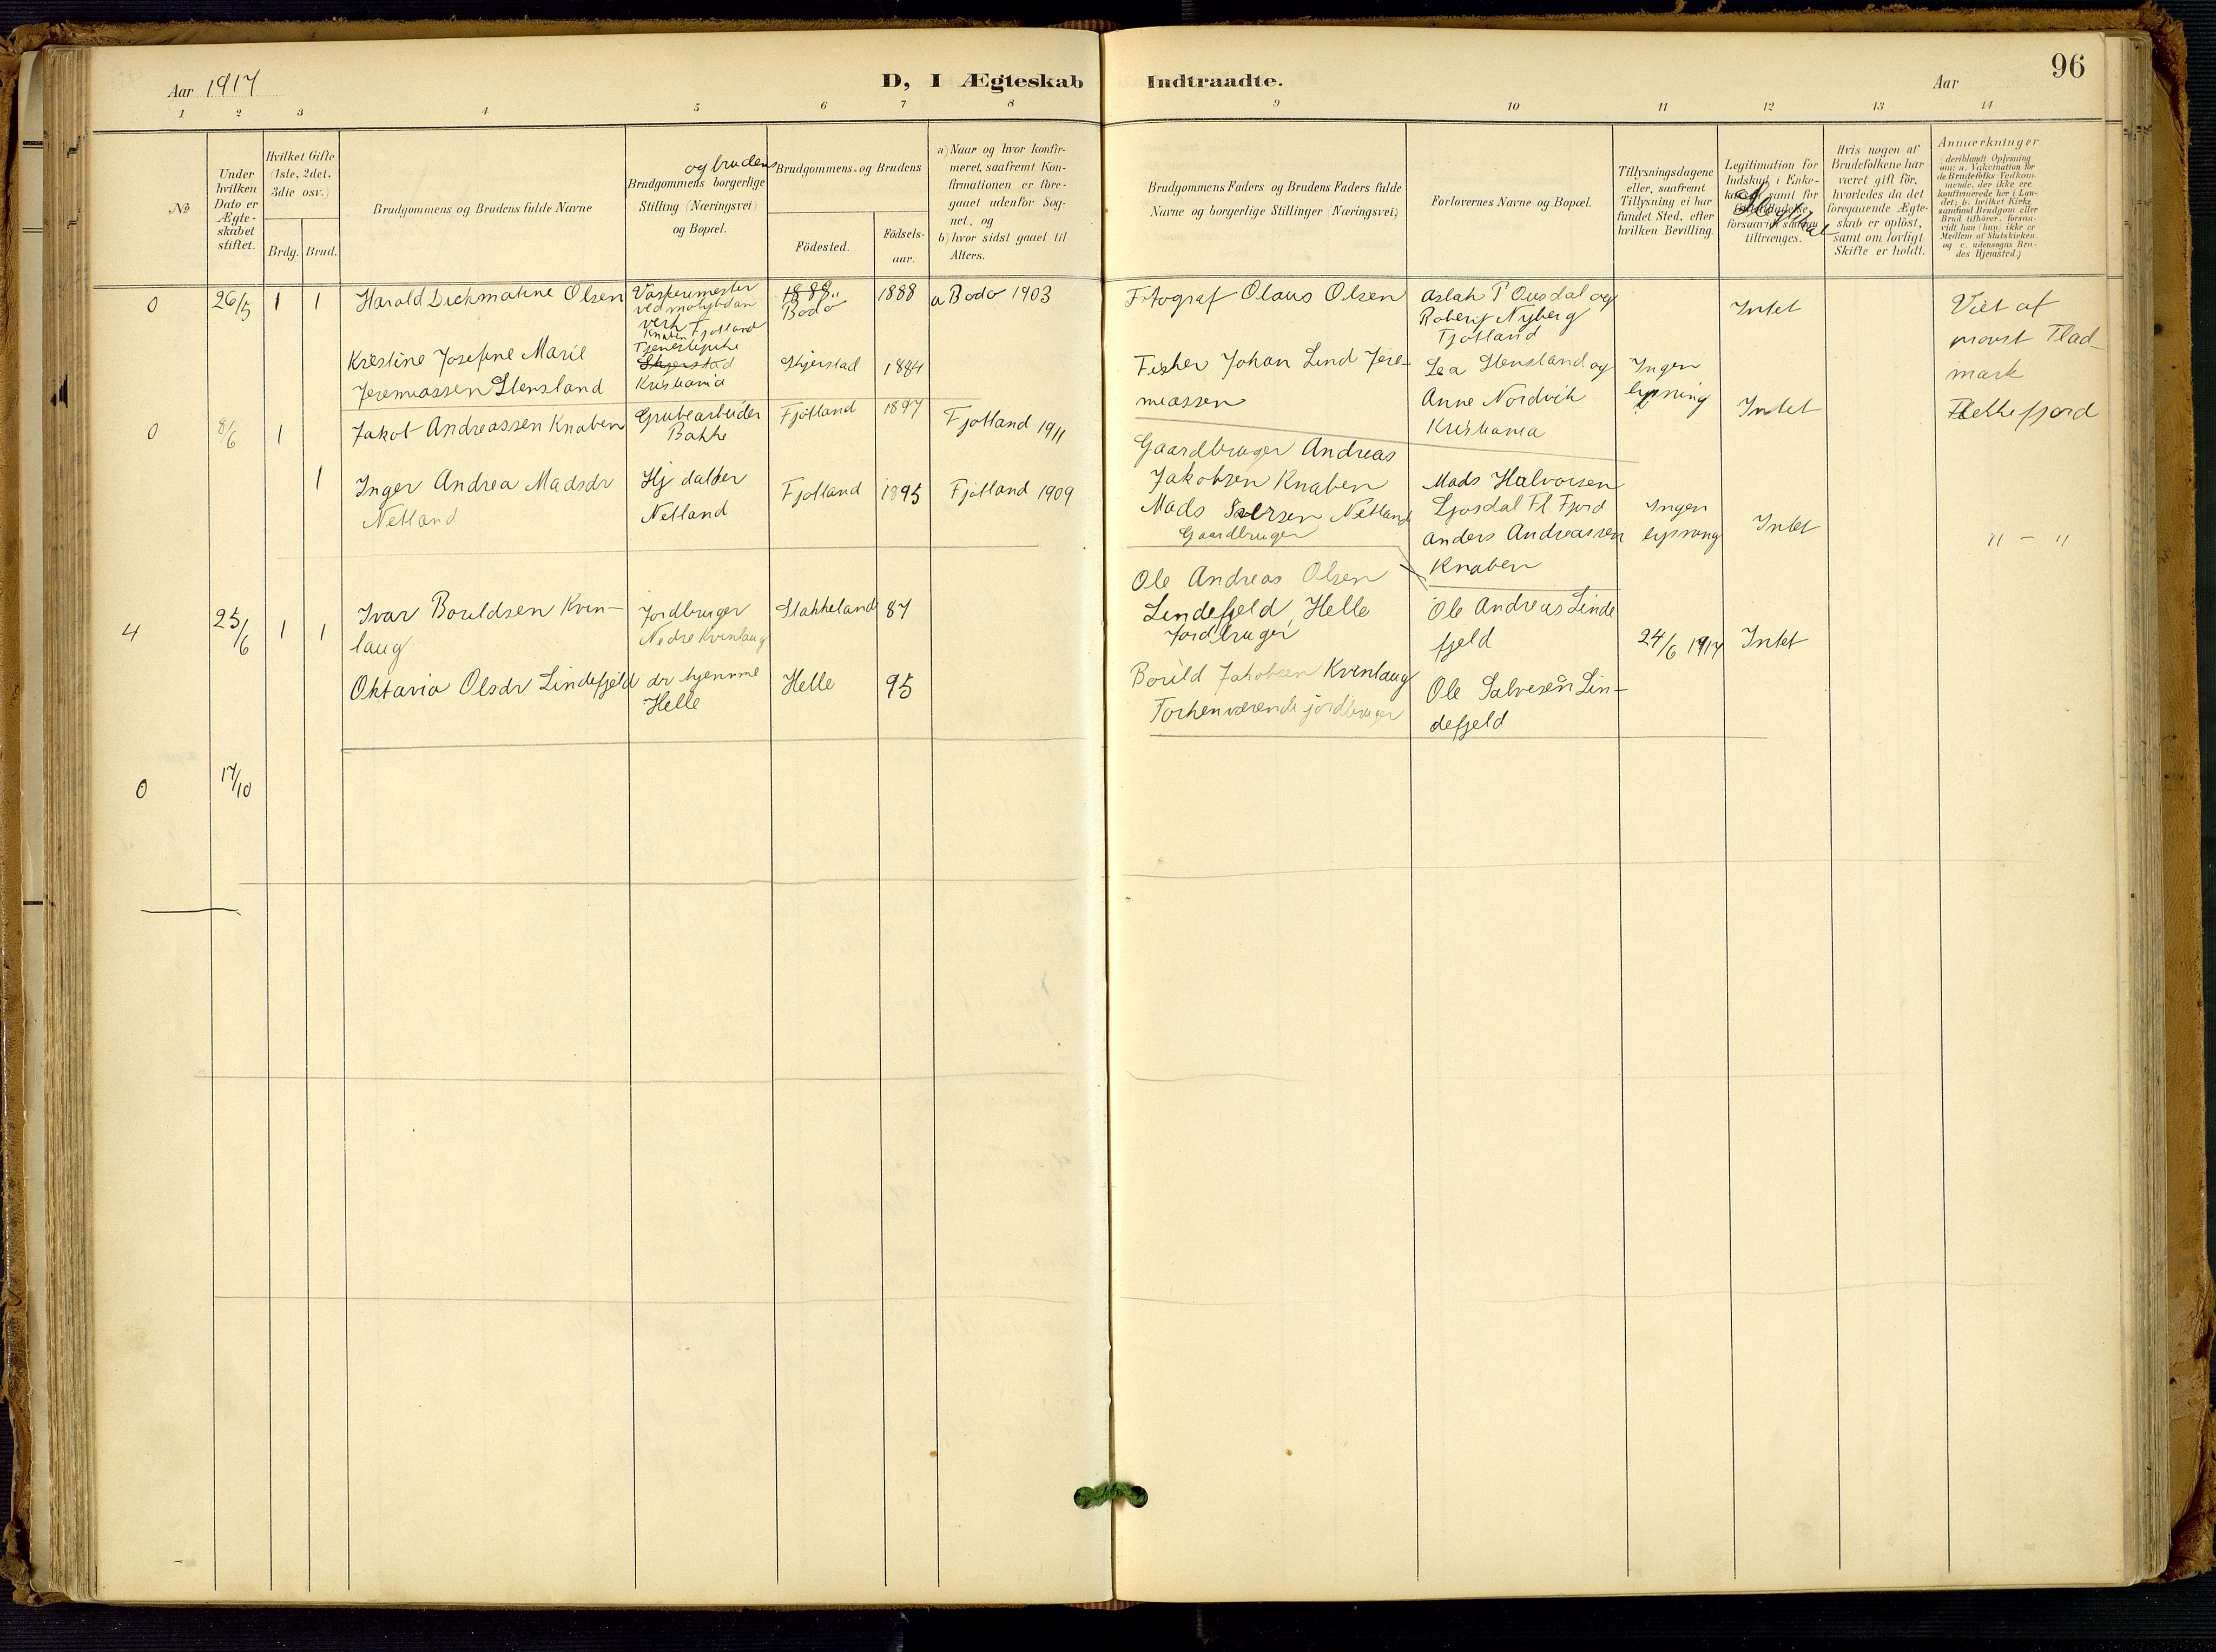 96
Aar 1917
D, I Ægteskab Indtraadte.
Aar
1 2 3 4 5 6 7 8 9 10 11 12 13 14
No
Under hvilken Dato er Ægteskabet stiftet.
Hvilket Gifte (1ste, 2det, 3die osv.)
Brdg. Brud.
Brudgommens og Brudens fulde Navne
og brudens
Brudgommens borgerlige
Stilling (Næringsvei)
og Bopæl.
Brudgommens og Brudens
Födested.
Födselsaar.
a) Naar og hvor konfirmeret, saafremt Konfirmationen er foregaaet udenfor Sognet, og
b) hvor sidst gaaet til Alters.
Brudgommens Faders og Brudens Faders fulde
Navne og borgerlige Stillinger (Næringsvei)
Forlovernes Navne og Bopæl.
Tillysningsdagene eller, saafremt Tillysning ei har fundet Sted, efter hvilken Bevilling.
Legitimation for Indskud i Enkekassen samt for
forsaavidt saadan tiltrænges.
Hvis nogen af Brudefolkene har været gift för, hvorledes da det foregaaende Ægteskab er oplöst, samt om lovligt Skifte er holdt.
Anmærkninger
(deriblandt Oplysning om: a. Vakcination for de Brudefolks Vedkommende, der ikke ere konfirmerede her i Landet; b. hvilket Kirkesamfund Brudgom eller Brud tilhörer, forsaavidt han (hun) ikke er Medlem af Statskirken, og c. udensogns Brudes Hjemsted.)
0 26/5 1 1 Harald Dickmatine Olsen
Vaskerimester
ved molybdan
verk Fjotland
Knaben
1888
Bodo
1888
a Bodo 1903
Fotograf Olaus Olsen
Aslak T Ousdal og
Roberg Nyberg
Fjotland
Intet
Viet af
provst Flad-
mark
Flekkefjord
Kristine Josefine Marie
Jeremiassen Stensland
Tjenestepike
Skjerstad
Kristiania
Skjerstad
1884
Fisker Johan Lind Jere-
miassen
Lea Stensland og
Anne Nordvik
Kristiania
Ingen
lysning
Intet
0 8/6 1
Jakob Andreassen Knaben
Grubearbeider
Bakke
Fjotland
1897
Fjotland 1911
Gaardbruger Andreas
Jakobsen Knaben
1
Inger Andrea Madsdr
Netland
Hj datter
Netland
Fjotland
1895
Fjotland 1909
Mads Netland
Gaardbruger
Mads Halvorsen
Ljosdal Fl Fjord
Anders Andreassen
Knaben
Ingen
lysning
Intet
" - "
4 25/6 1 1
Ivar Borildsen Kvin-
laug
Jordbruger
Nedre Kvinlaug
Stakkeland
87
Ole Andreas Olsen
Lindefjeld, Helle
Jordbruger
Ole Andreas Linde
fjeld
24/6 1917
Intet
Oktavia Olsdr Lindefjeld
dr hjemme
Helle
Helle
95
Borild Jakobsen Kvinlaug
Forhenværende jordbruger
Ole Salvesen Lin-
defjeld
0 17/10